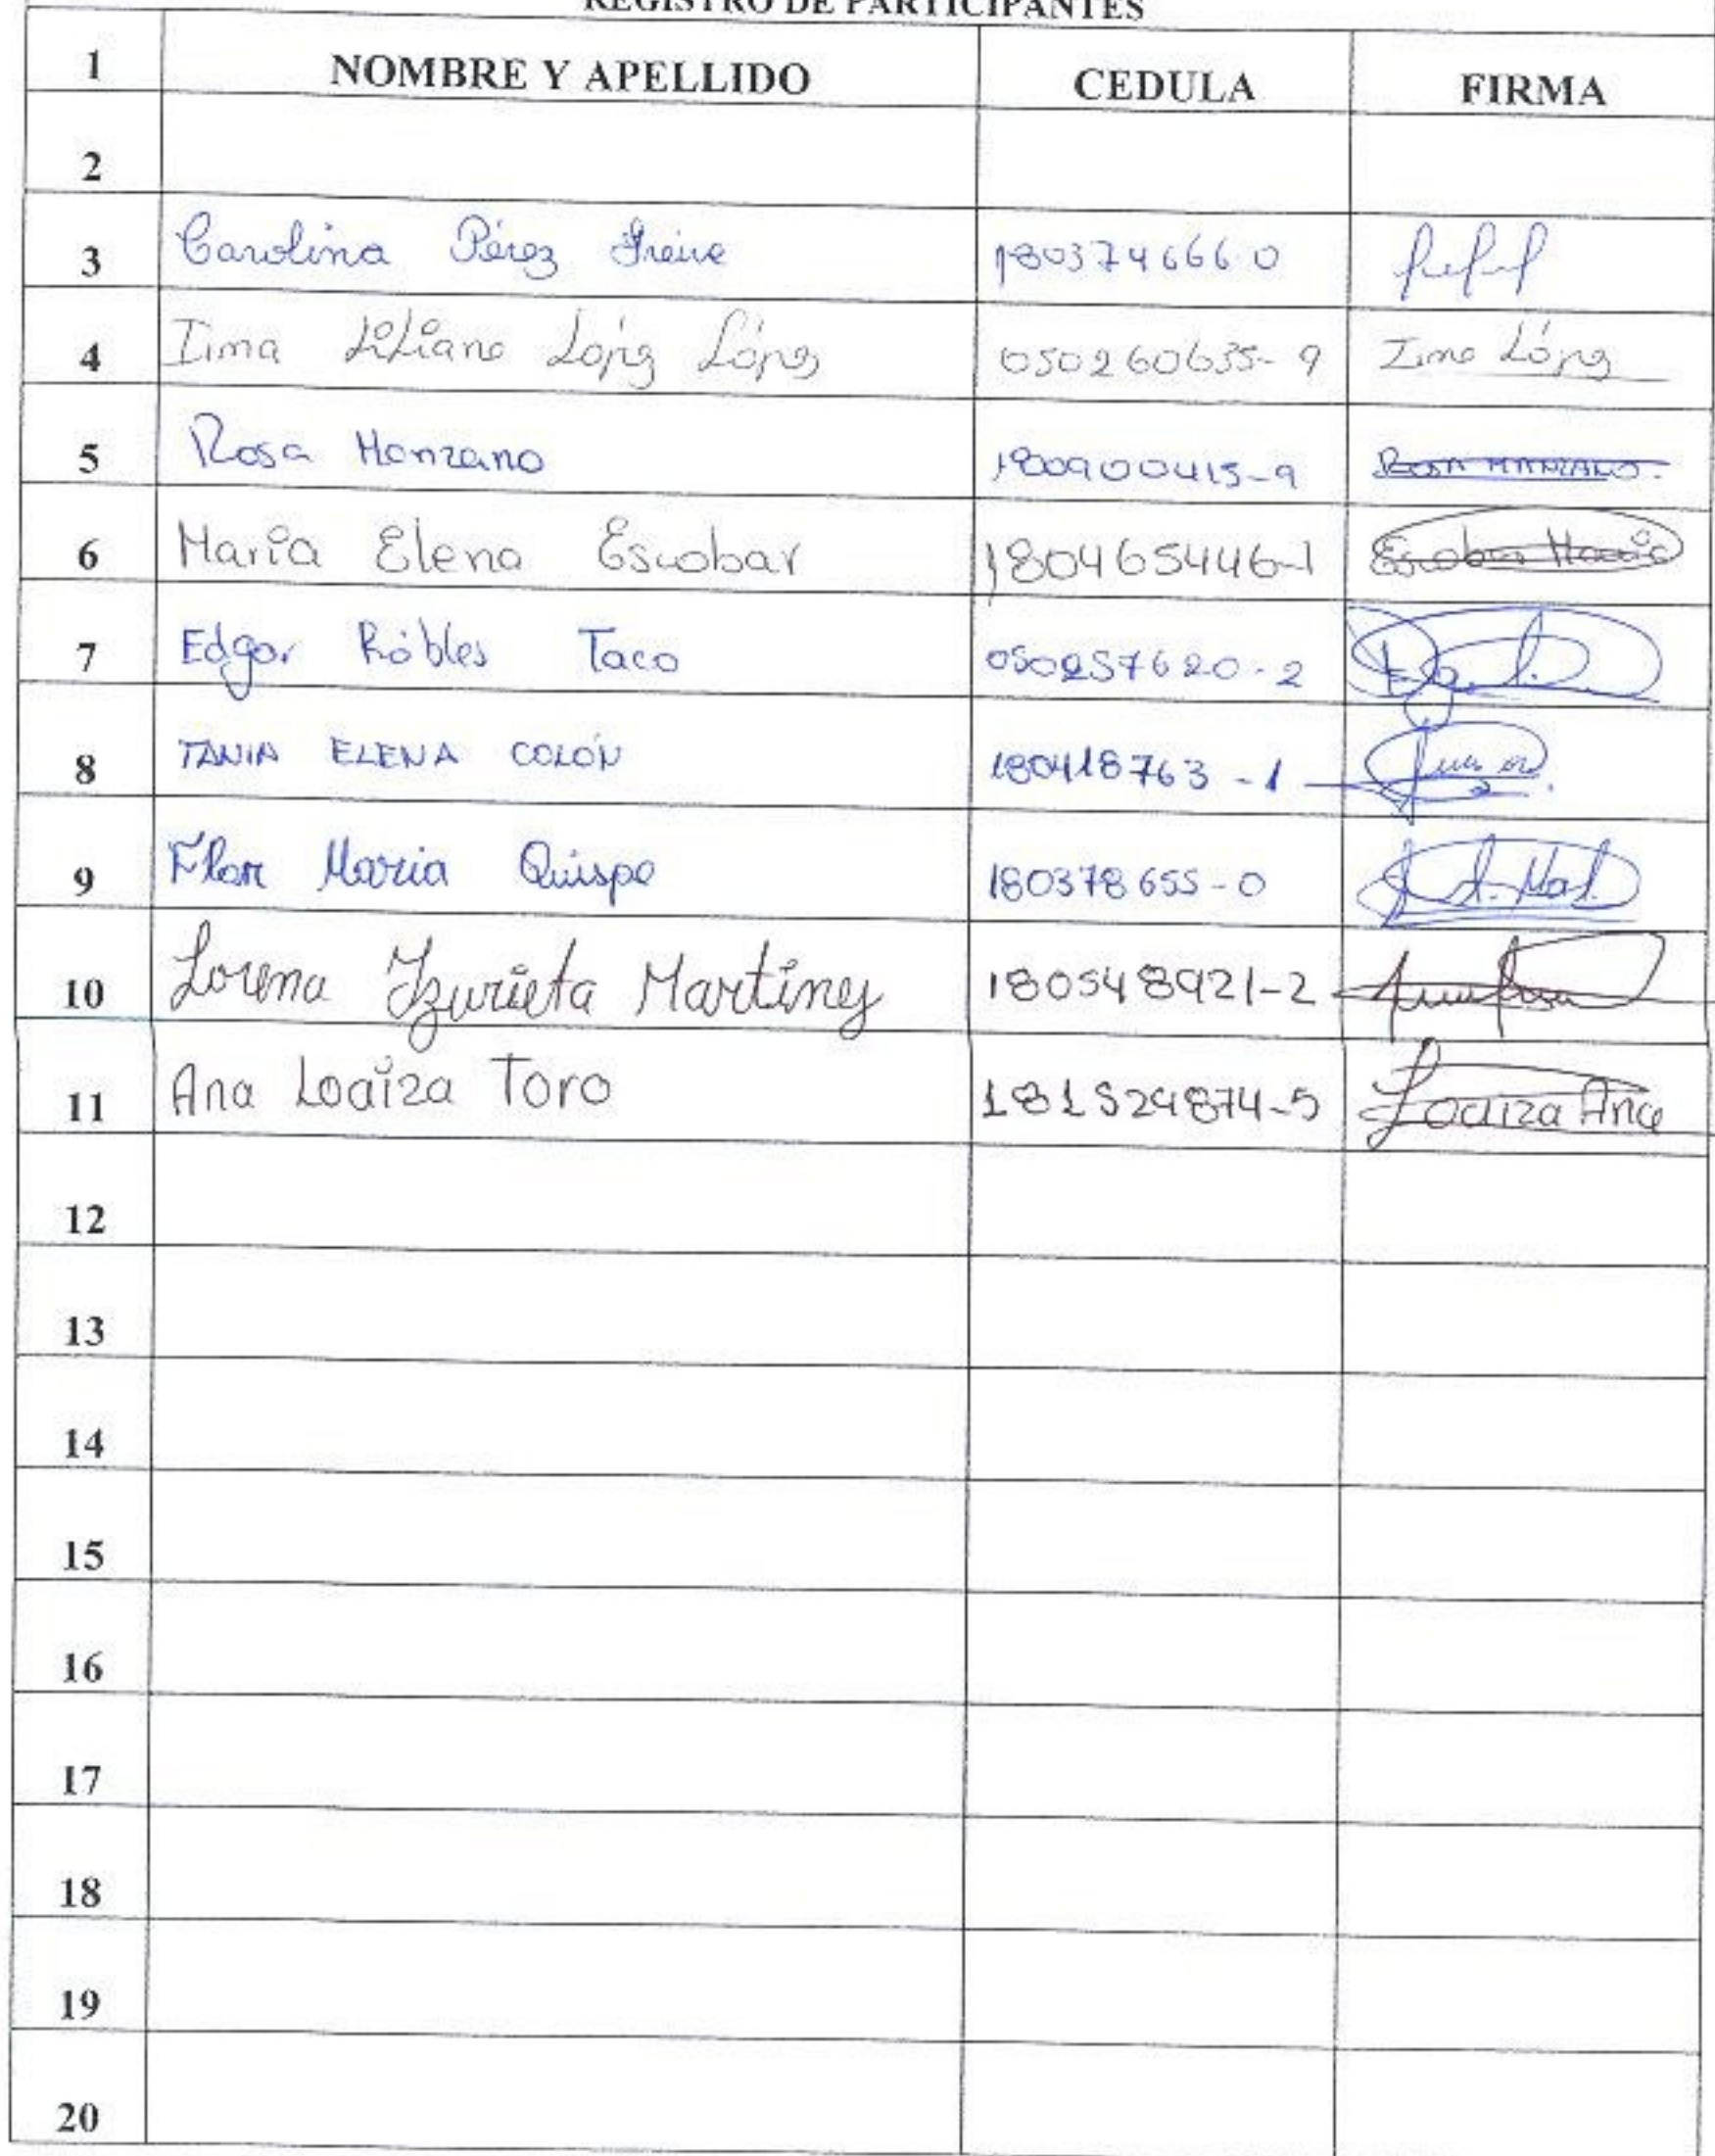 REGISTRO DE PARTICIPANTES
1 NOMBRE Y APELLIDO CEDULA FIRMA
2
3 Carolina Pérez Freire 180374666-0
4 Irma Liliana López López 050260635-9 Irma López
5 Rosa Manzano 180900415-9 ROSA MANZANO.
6 María Elena Escobar 180465446-1 Escobar María
7 Edgar Róbles Taco 050257620-2
8 TANIA ELENA COLÓN 180418763-1
9 Flor Maria Quispe 180378655-0
10 Lorena Izurieta Martínez 180548921-2
11 Ana Loaiza Toro 181529874-5 Loaiza Ana
12
13
14
15
16
17
18
19
20